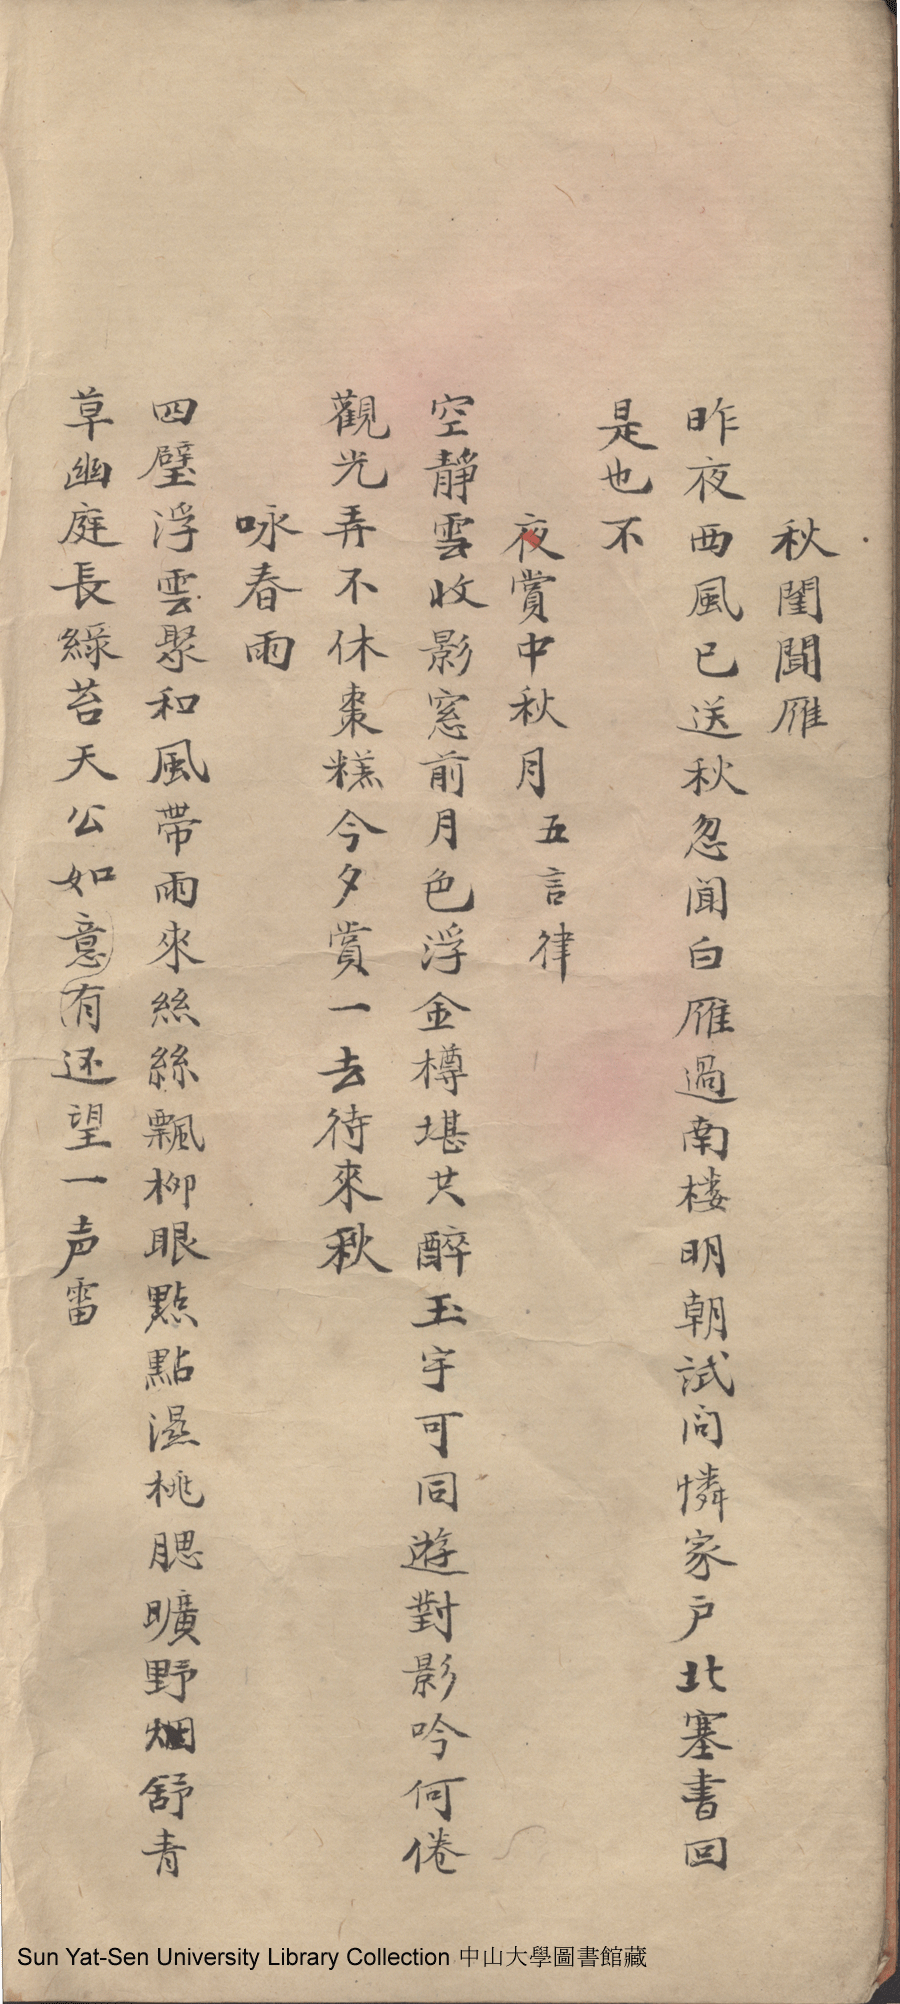 秋閨聞雁
昨夜西風已送秋忽聞白雁過南楼明朝試问憐家户北塞書回
是也不
夜賞中秋月 五言律
空静雲收影窓前月色浮金樽堪共醉玉宇可同遊對影吟何倦
觀光弄不休棗糕今夕賞一去待來秋
咏春雨
四壁浮雲聚和風帶雨來絲絲飄柳眼點點濕桃腮曠野烟舒青
草幽庭長綠苔天公如意有还望一声雷
Sun Yat-Sen University Library Collection 中山大學圖書館藏